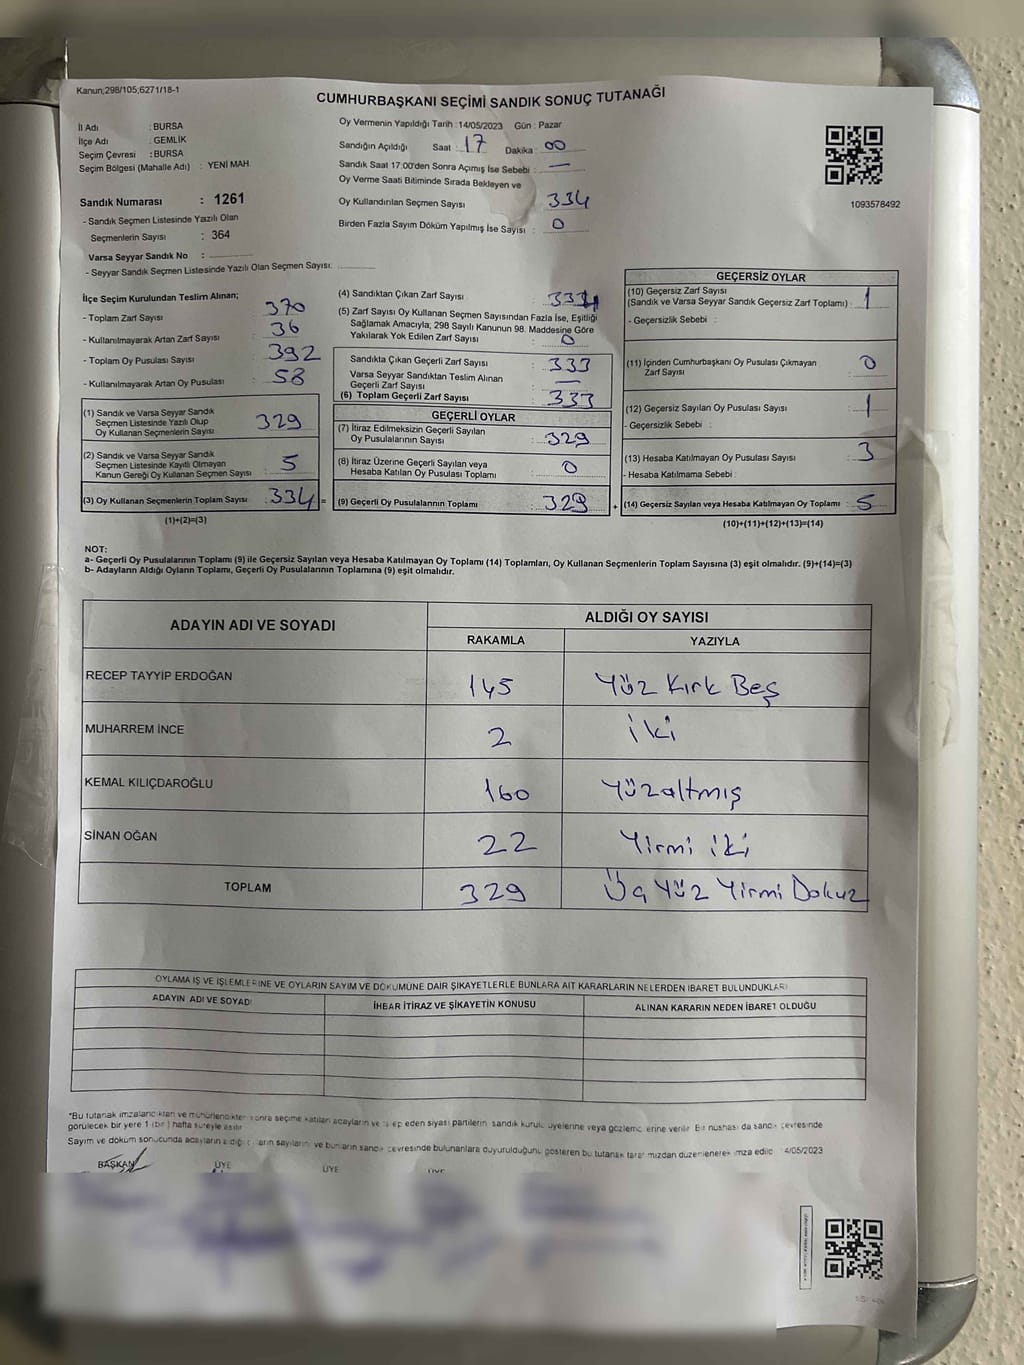 Kanun;298/105;6271/18-1
CUMHURBAŞKANI SEÇİMİ SANDIK SONUÇ TUTANAĞI
İl Adı : BURSA
İlçe Adı : GEMLİK
Seçim Çevresi : BURSA
Seçim Bölgesi (Mahalle Adı) : YENİ MAH.
Sandık Numarası : 1261
- Sandık Seçmen Listesinde Yazılı Olan
Seçmenlerin Sayısı : 364
Varsa Seyyar Sandık No :
- Seyyar Sandık Seçmen Listesinde Yazılı Olan Seçmen Sayısı.
Oy Vermenin Yapıldığı Tarih : 14/05/2023 Gün : Pazar
Sandığın Açıldığı Saat : 17 Dakika : 00
Sandık Saat 17:00'den Sonra Açılmış İse Sebebi : —
Oy Verme Saati Bitiminde Sırada Bekleyen ve
Oy Kullandırılan Seçmen Sayısı 334
Birden Fazla Sayım Döküm Yapılmış İse Sayısı : 0
1093578492
İlçe Seçim Kurulundan Teslim Alınan;
- Toplam Zarf Sayısı : 370
- Kullanılmayarak Artan Zarf Sayısı : 36
- Toplam Oy Pusulası Sayısı : 392
- Kullanılmayarak Artan Oy Pusulası : 58
(1) Sandık ve Varsa Seyyar Sandık
Seçmen Listesinde Yazılı Olup
Oy Kullanan Seçmenlerin Sayısı 329
(2) Sandık ve Varsa Seyyar Sandık
Seçmen Listesinde Kayıtlı Olmayan
Kanun Gereği Oy Kullanan Seçmen Sayısı 5
(3) Oy Kullanan Seçmenlerin Toplam Sayısı : 334 =
(1)+(2)=(3)
(4) Sandıktan Çıkan Zarf Sayısı : 334
(5) Zarf Sayısı Oy Kullanan Seçmen Sayısından Fazla İse, Eşitliği
Sağlamak Amacıyla; 298 Sayılı Kanunun 98. Maddesine Göre
Yakılarak Yok Edilen Zarf Sayısı : 0
Sandıkta Çıkan Geçerli Zarf Sayısı : 333
Varsa Seyyar Sandıktan Teslim Alınan
Geçerli Zarf Sayısı —
(6) Toplam Geçerli Zarf Sayısı : 333
GEÇERLİ OYLAR
(7) İtiraz Edilmeksizin Geçerli Sayılan
Oy Pusulalarının Sayısı : 329
(8) İtiraz Üzerine Geçerli Sayılan veya
Hesaba Katılan Oy Pusulası Toplamı : 0
(9) Geçerli Oy Pusulalarının Toplamı : 329 +
GEÇERSİZ OYLAR
(10) Geçersiz Zarf Sayısı
(Sandık ve Varsa Seyyar Sandık Geçersiz Zarf Toplamı) : 1
- Geçersizlik Sebebi :
(11) İçinden Cumhurbaşkanı Oy Pusulası Çıkmayan
Zarf Sayısı : 0
(12) Geçersiz Sayılan Oy Pusulası Sayısı : 1
- Geçersizlik Sebebi :
(13) Hesaba Katılmayan Oy Pusulası Sayısı : 3
- Hesaba Katılmama Sebebi :
(14) Geçersiz Sayılan veya Hesaba Katılmayan Oy Toplamı : 5
(10)+(11)+(12)+(13)=(14)
NOT:
a- Geçerli Oy Pusulalarının Toplamı (9) ile Geçersiz Sayılan veya Hesaba Katılmayan Oy Toplamı (14) Toplamları, Oy Kullanan Seçmenlerin Toplam Sayısına (3) eşit olmalıdır. (9)+(14)=(3)
b- Adayların Aldığı Oyların Toplamı, Geçerli Oy Pusulalarının Toplamına (9) eşit olmalıdır.
ADAYIN ADI VE SOYADI
ALDIĞI OY SAYISI
RAKAMLA YAZIYLA
RECEP TAYYİP ERDOĞAN 145 Yüz Kırk Beş
MUHARREM İNCE 2 iki
KEMAL KILIÇDAROĞLU 160 Yüzaltmış
SİNAN OĞAN 22 Yirmi iki
TOPLAM 329 Üç Yüz Yirmi Dokuz
OYLAMA İŞ VE İŞLEMLERİNE VE OYLARIN SAYIM VE DÖKÜMÜNE DAİR ŞİKAYETLERLE BUNLARA AİT KARARLARIN NELERDEN İBARET BULUNDUKLARI
ADAYIN ADI VE SOYADI İHBAR İTİRAZ VE ŞİKAYETİN KONUSU ALINAN KARARIN NEDEN İBARET OLDUĞU
*Bu tutanak imzalandıktan ve mühürlendikten sonra seçime katılan adayların ve talep eden siyasi partilerin sandık kurulu üyelerine veya gözlemcilerine verilir. Bir nüshası da sandık çevresinde
görülecek bir yere 1 (bir) hafta süreyle asılır.
Sayım ve döküm sonucunda adayların aldığı oyların sayıların ve bunların sandık çevresinde bulunanlara duyurulduğunu gösteren bu tutanak tarafımızdan düzenlenerek imza edildi 14/05/2023
BAŞKAN ÜYE ÜYE ÜYE